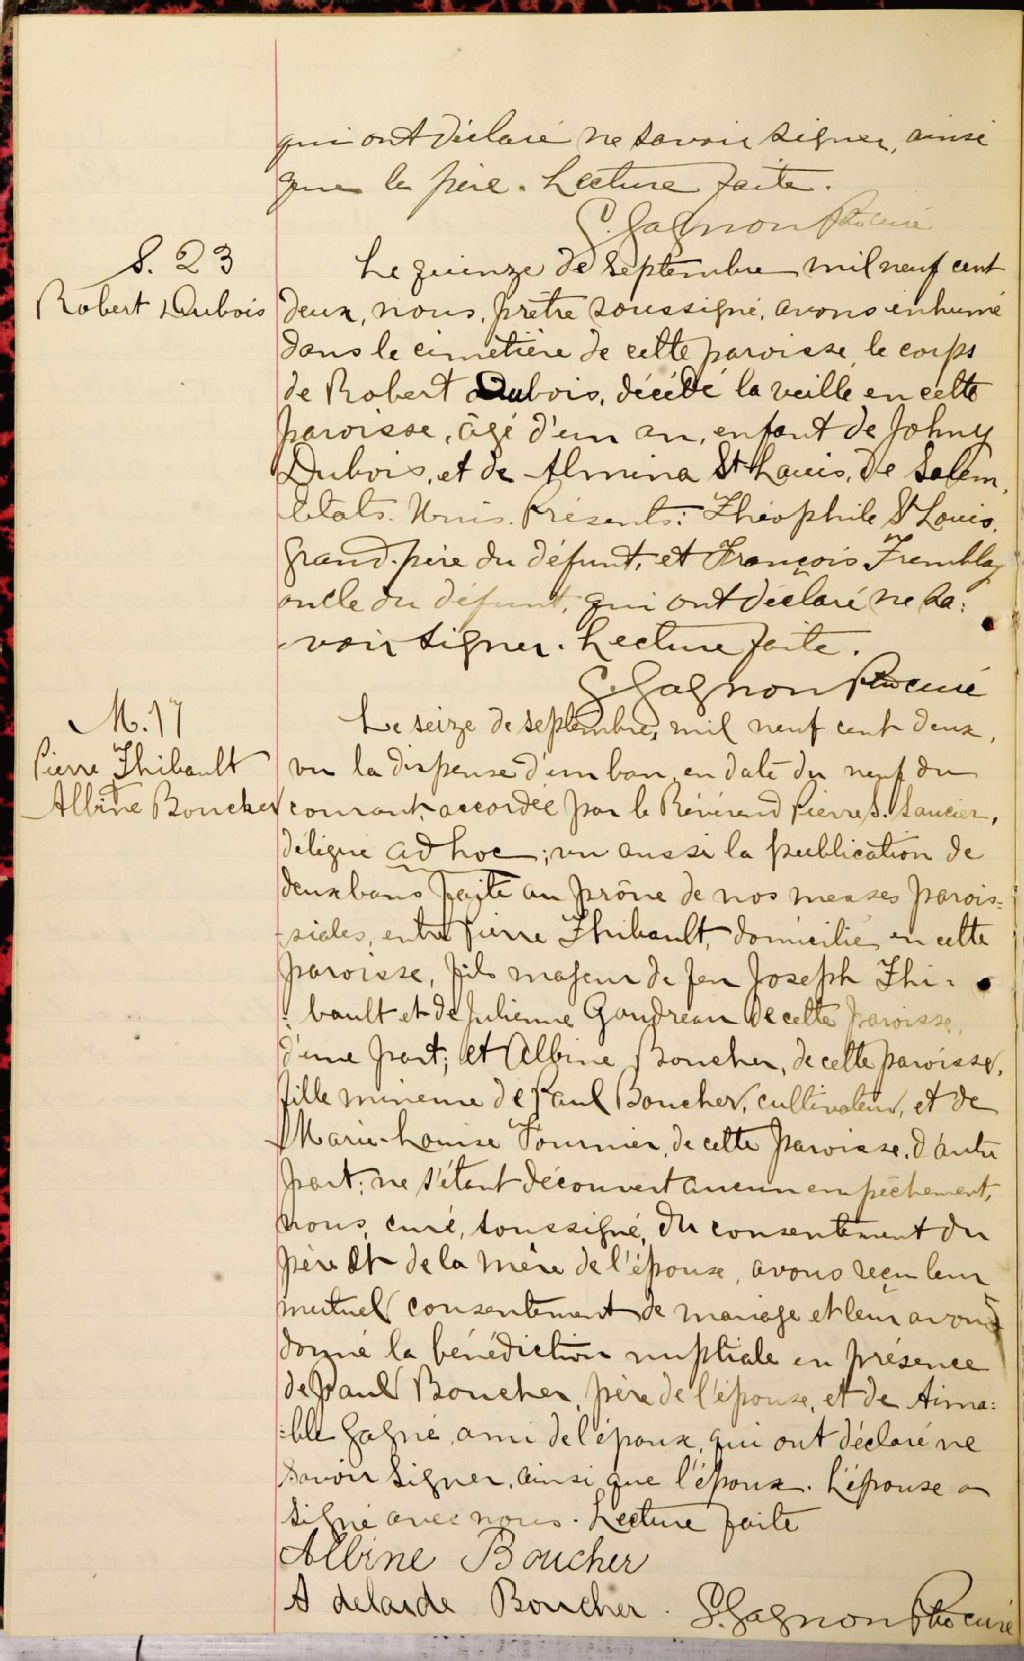 qui ont déclaré ne savoir signer, ainsi
que le père. Lecture faite.
Gagnon Ptre curé
S. 23
Robert Dubois
Le quinze de septembre mil neuf cent
deux, nous, prêtre soussigné, avons inhumé
dans le cimetière de cette paroisse, le corps
de Robert Dubois, décédé la veille en cette
paroisse, âgé d'un an, enfant de Johny
Dubois, et de Almina St Louis, de Salem,
Etats-Unis. Présents: Théophile St Louis,
grand-père du défunt, et François Tremblay
oncle du défunt, qui ont déclaré ne sa=
voir signer. Lecture faite.
Gagnon Ptre curé
M. 17
Pierre Thibault
et
Albine Boucher
Le seize de septembre, mil neuf cent deux,
vu la dispense d'un ban, en date du neuf du
courant, accordée par le Révérend Pierre S. Saucier,
délégué ad hoc; vu aussi la publication de
deux bans faite au prône de nos messes parois=
siales, entre Pierre Thibault, domicilié en cette
paroisse, fils majeur de feu Joseph Thi=
=bault et de Julienne Gaudreau de cette paroisse,
d'une part; et Albine Boucher, de cette paroisse,
fille mineure de Paul Boucher, cultivateur, et de
Marie-Louise Fournier, de cette paroisse, d'autre
part; ne s'étant découvert aucun empêchement,
nous, curé, soussigné, du consentement du
père et de la mère de l'épouse, avons reçu leur
mutuel consentement de mariage et leur avons
donné la bénédiction nuptiale en présence
de Paul Boucher, père de l'épouse, et de Aima=
=ble Gagné, ami de l'époux, qui ont déclaré ne
savoir signer, ainsi que l'époux. L'épouse a
signé avec nous. Lecture faite
Albine Boucher
Adelaide Boucher. Gagnon Ptre curé